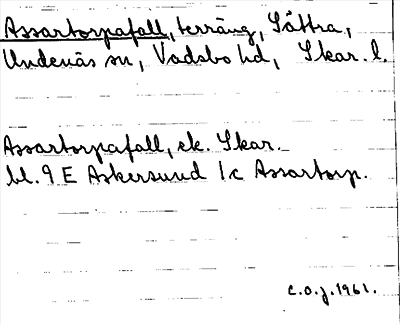 Assartorpafall, terräng, Såttra,
Undenäs sn, Vadsbo hd, Skar. l.
Assartorpafall, ek. Skar.
bl. 9 E Askersund 1c Assartorp.
C.O.J. 1961.